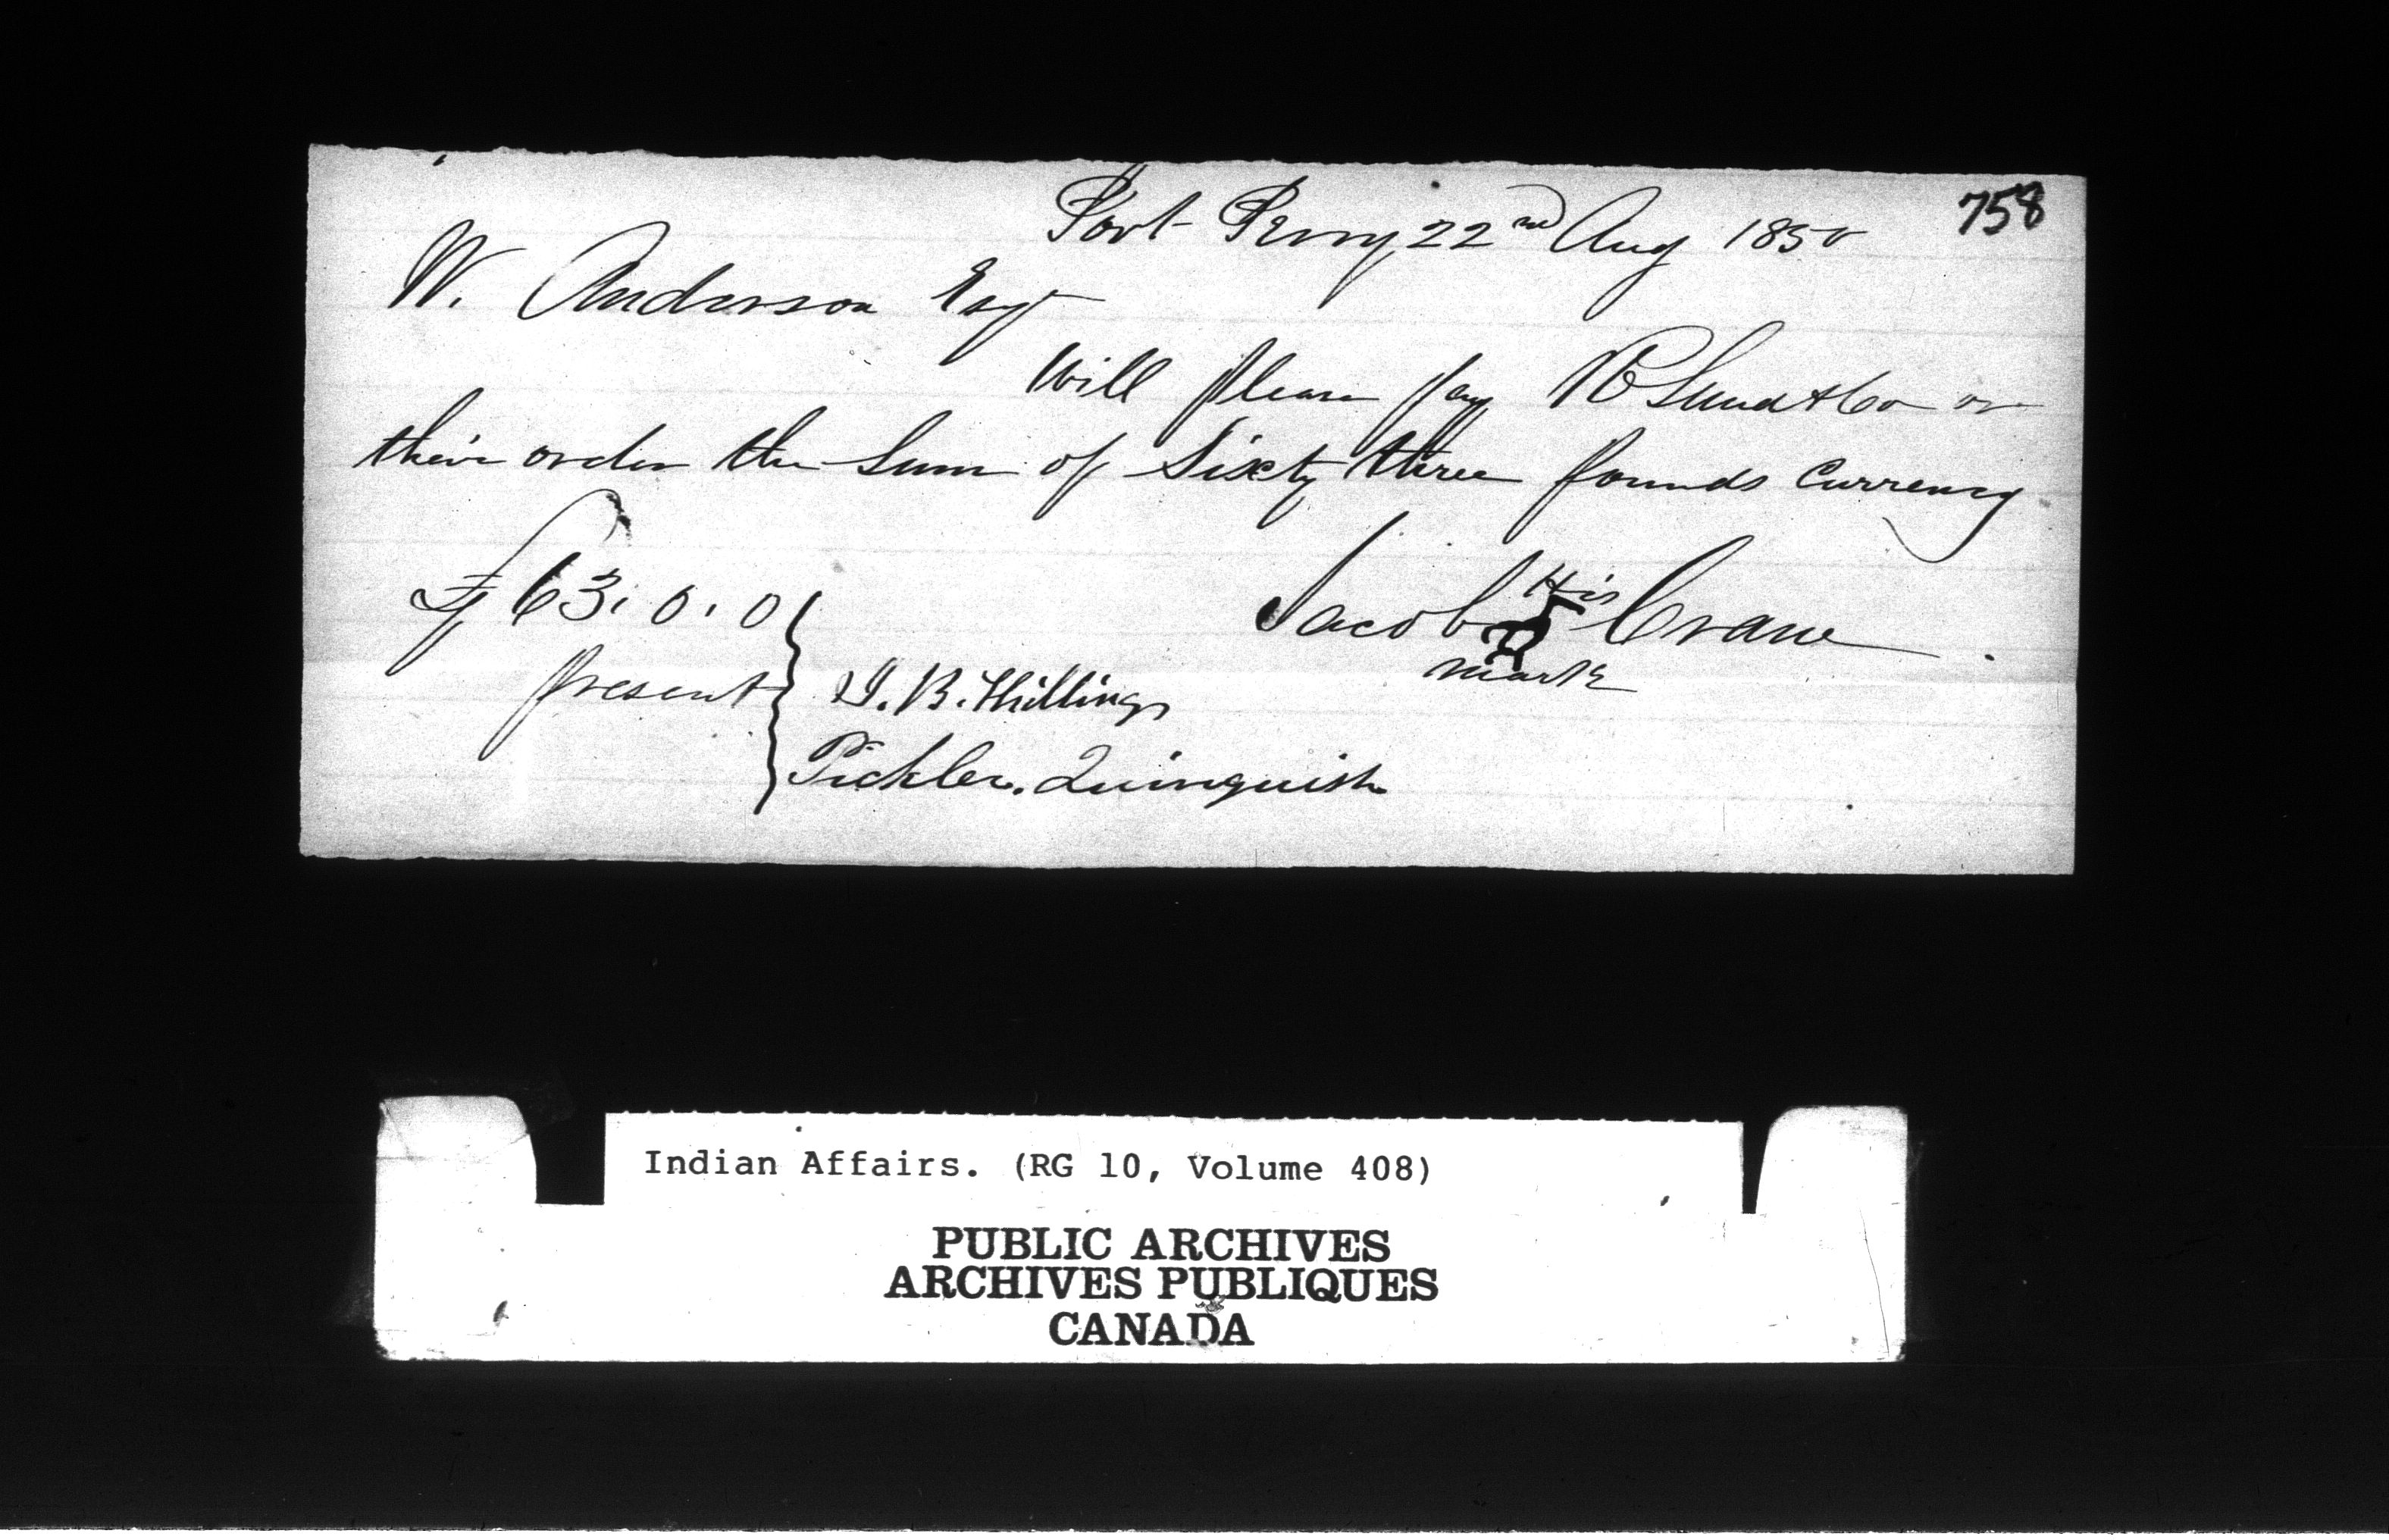 758
Port Perry 22nd Aug 1850
W. Anderson Esqr
Will please pay & Co or
their order the Sum of Sixty three pounds Currency
£63.0.0
Jacob His Crane
mark
present
Pickler. Quinquish
Indian Affairs. (RG 10, Volume 408)
PUBLIC ARCHIVES
ARCHIVES PUBLIQUES
CANADA